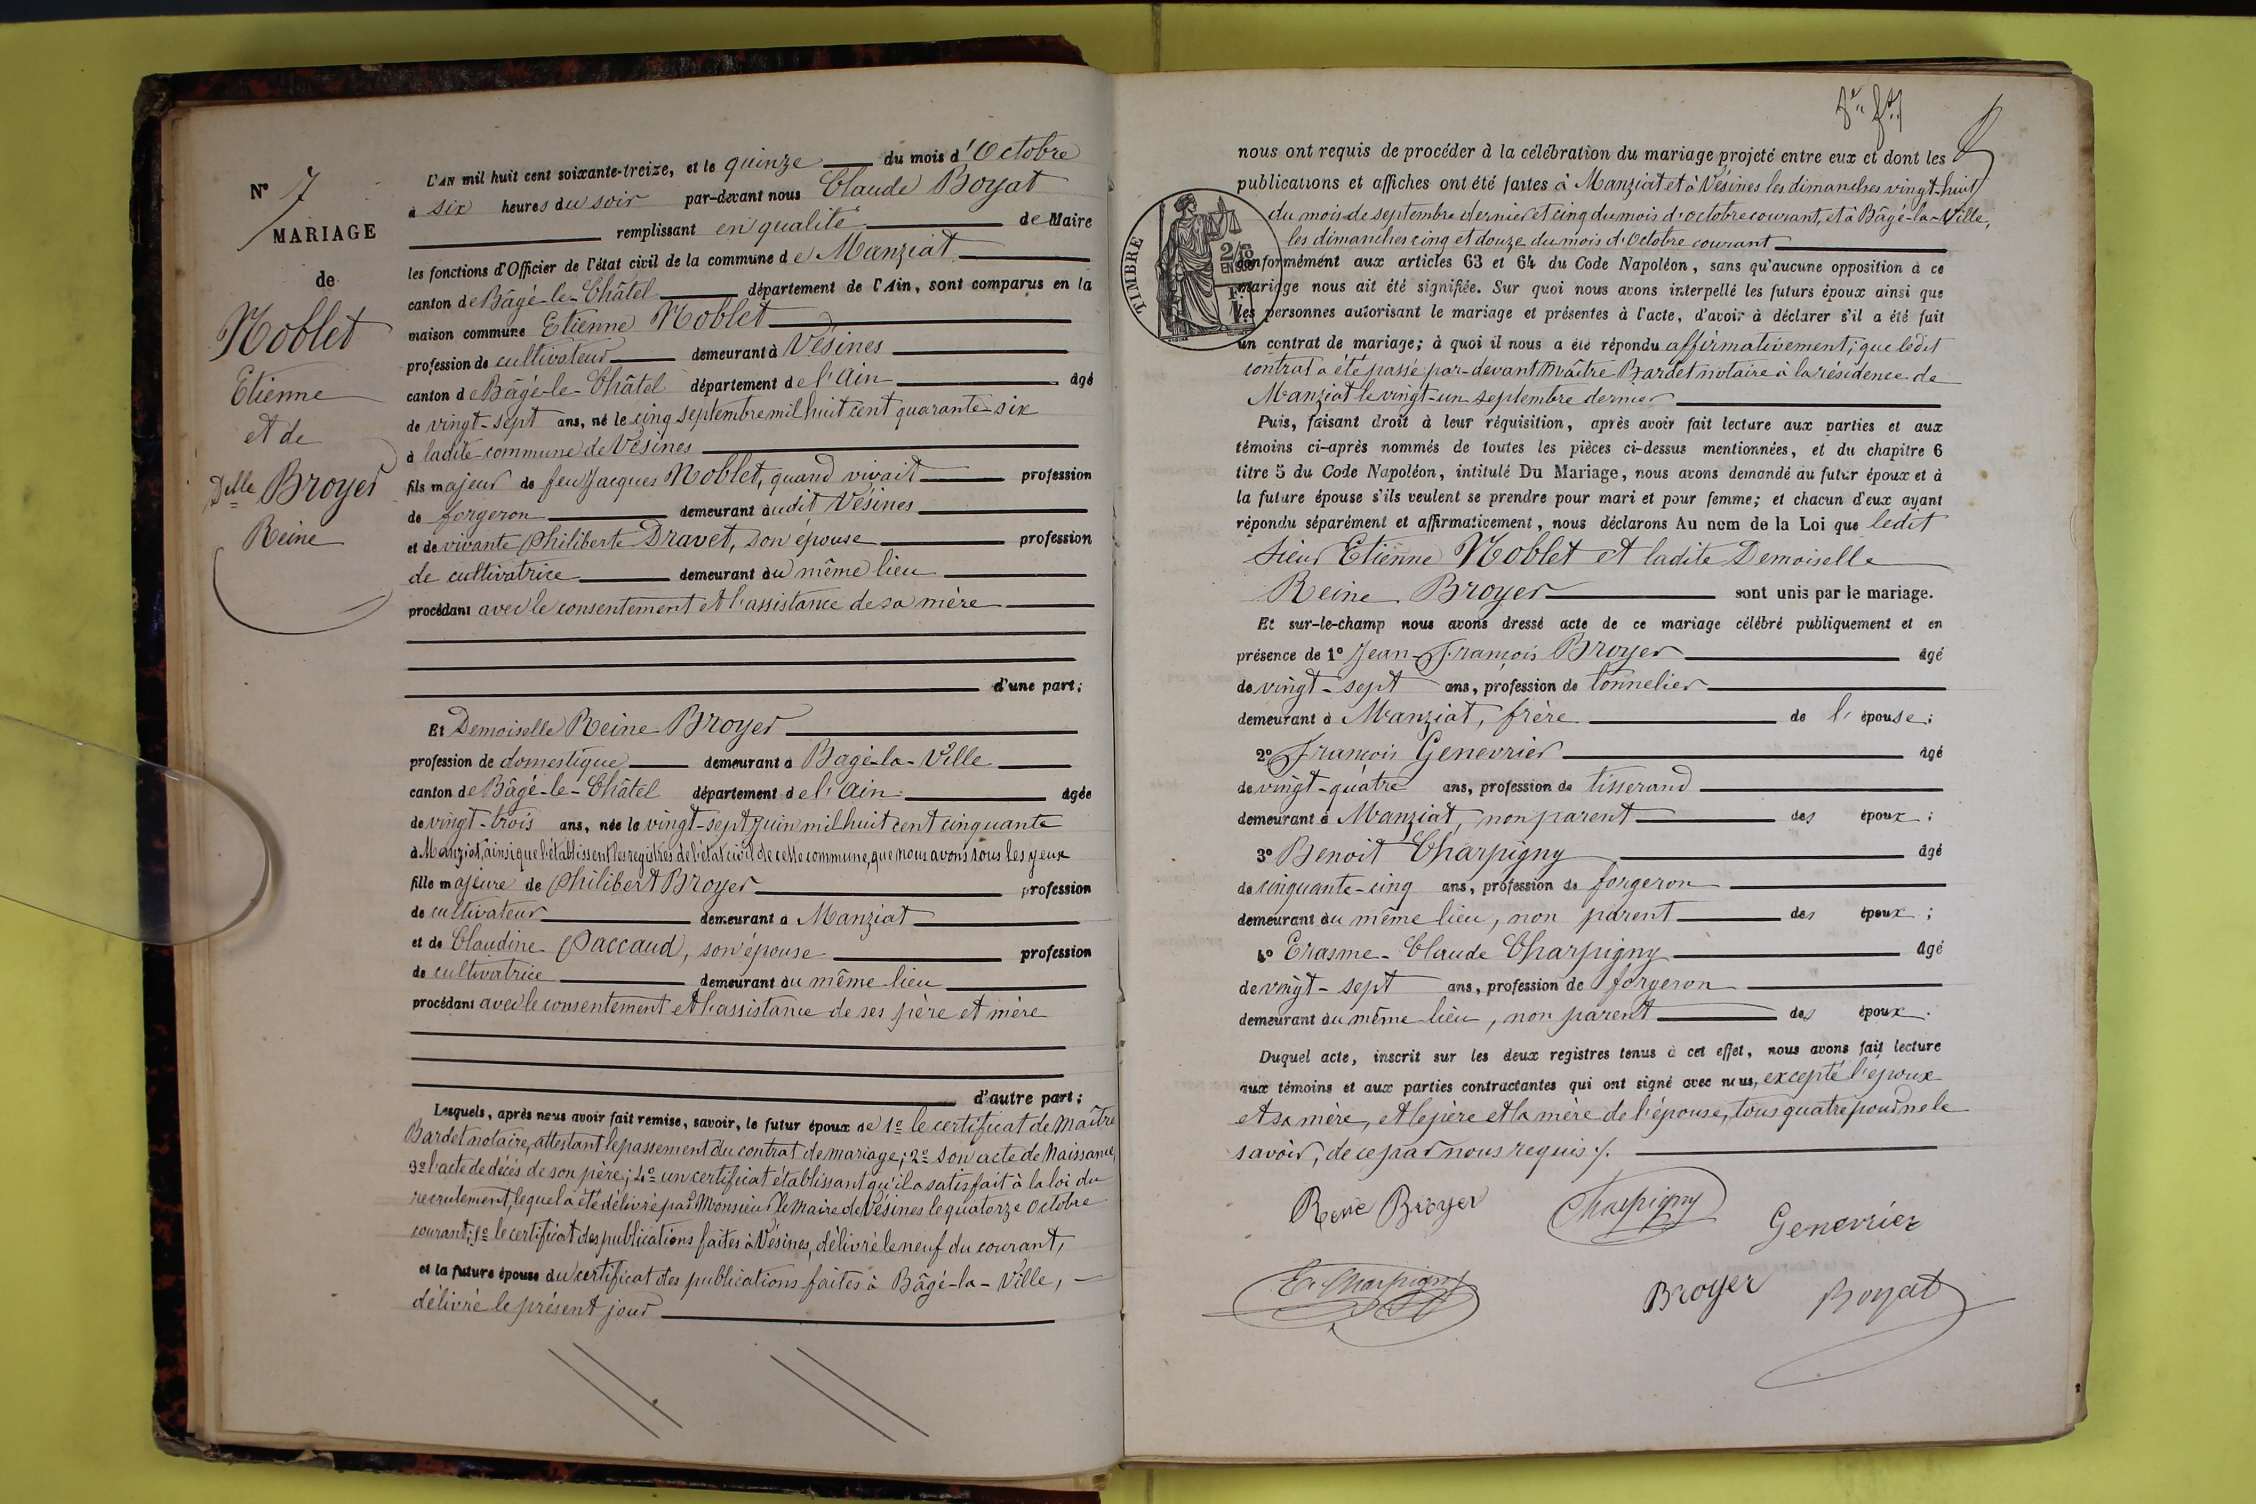 N° 7
MARIAGE
de
Noblet
Etienne
et de
Delle Broyer
Reine
L'AN mil huit cent soixante-treize, et le quinze du mois d'Octobre
à six heures du soir par-devant nous Claude Boyat
remplissant en qualité de Maire
les fonctions d'Officier de l'état civil de la commune de Manziat
canton de Bâgé-le-Châtel département de l'Ain, sont comparus en la
maison commune Etienne Noblet
profession de cultivateur demeurant à Vésines
canton de Bâgé-le-Châtel département de l'Ain âgé
de vingt-sept ans, né le cinq septembre mil huit cent quarante-six
à ladite commune de Vésines
fils majeur de feu Jacques Noblet, quand vivait profession
de forgeron demeurant audit Vésines
et de vivante Philiberte Dravet, son épouse profession
de cultivatrice demeurant au même lieu
procédant avec le consentement et l'assistance de sa mère
d'une part;
Et Demoiselle Reine Broyer
profession de domestique demeurant à Bâgé-la-Ville
canton de Bâgé-le-Châtel département de l'Ain âgée
de vingt-trois ans, née le vingt-sept juin mil huit cent cinquante
à Manziat, ainsi que l'établissent les registres de l'état civil de cette commune, que nous avons sous les yeux
fille majeure de Philibert Broyer profession
de cultivateur demeurant à Manziat
et de Claudine Paccaud, son épouse profession
de cultivatrice demeurant au même lieu
procédant avec le consentement et l'assistance de ses père et mère
d'autre part;
Lesquels, après nous avoir fait remise, savoir, le futur époux de 1° le certificat de Maître
Bardet notaire, attestant le passement du contrat de mariage; 2° son acte de Naissance,
3° l'acte de décès de son père; 4° un certificat établissant qu'il a satisfait à la loi du
recrutement, lequel a été délivré par Monsieur le Maire de Vésines le quatorze Octobre
courant; 5° le certificat des publications faites à Vésines, délivré le neuf du courant,
et la future épouse du certificat des publications faites à Bâgé-la-Ville,
délivré le présent jour
nous ont requis de procéder à la célébration du mariage projeté entre eux et dont les
publications et affiches ont été faites à Manziat et à Vésines les dimanches vingt-huit
du mois de septembre dernier et cinq du mois d'octobre courant, et à Bâgé-la-Ville,
les dimanches cinq et douze du mois d'Octobre courant
TIMBRE
2/10
EN SUS
conformément aux articles 63 et 64 du Code Napoléon, sans qu'aucune opposition à ce
mariage nous ait été signifiée. Sur quoi nous avons interpellé les futurs époux ainsi que
les personnes autorisant le mariage et présentes à l'acte, d'avoir à déclarer s'il a été fait
un contrat de mariage; à quoi il nous a été répondu affirmativement; que ledit
contrat a été passé par-devant Maître Bardet notaire à la résidence de
Manziat le vingt-un septembre dernier
Puis, faisant droit à leur réquisition, après avoir fait lecture aux parties et aux
témoins ci-après nommés de toutes les pièces ci-dessus mentionnées, et du chapitre 6
titre 5 du Code Napoléon, intitulé Du Mariage, nous avons demandé au futur époux et à
la future épouse s'ils veulent se prendre pour mari et pour femme; et chacun d'eux ayant
répondu séparément et affirmativement, nous déclarons Au nom de la Loi que ledit
sieur Etienne Noblet et ladite Demoiselle
Reine Broyer sont unis par le mariage.
Et sur-le-champ nous avons dressé acte de ce mariage célébré publiquement et en
présence de 1° Jean-François Broyer âgé
de vingt-sept ans, profession de tonnelier
demeurant à Manziat, frère de l'épouse;
2° François Genevrier âgé
de vingt-quatre ans, profession de tisserand
demeurant à Manziat, non parent des époux;
3° Benoit Charpigny âgé
de cinquante-cinq ans, profession de forgeron
demeurant au même lieu, non parent des époux;
4° Erasme-Claude Charpigny âgé
de vingt-sept ans, profession de forgeron
demeurant au même lieu, non parent des époux.
Duquel acte, inscrit sur les deux registres tenus à cet effet, nous avons fait lecture
aux témoins et aux parties contractantes qui ont signé avec nous, excepté l'époux
et sa mère, et le père et la mère de l'épouse, tous quatre pour ne le
savoir, de ce par nous requis ./.
Reine Broyer Charpigny Genevrier
E. Charpigny Broyer Boyat